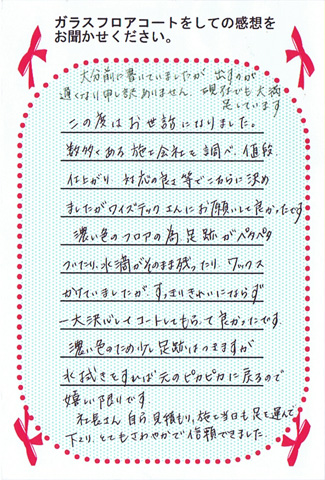 ガラスフロアコートをしての感想を
お聞かせください。
大分前に書いていましたが 出すのが
遅くなり申し訳ありません。現在でも大満
足しています
この度はお世話になりました。
数多くある施工会社を調べ、値段
仕上がり、対応の良さ等でこちらに決め
ましたがワイズテックさんにお願いして良かったです
濃い色のフロアの為、足跡がペタペタ
ついたり、水滴がそのまま残ったり、ワックス
かけていましたが、すっきりきれいにならず
一大決心しコートしてもらって良かったです。
濃い色のため少し足跡はつきますが
水拭きをすれば元のピカピカに戻るので
嬉しい限りです
社長さん自ら、見積もり、施工当日も足を運んで
下さり、とてもさわやかで信頼できました。